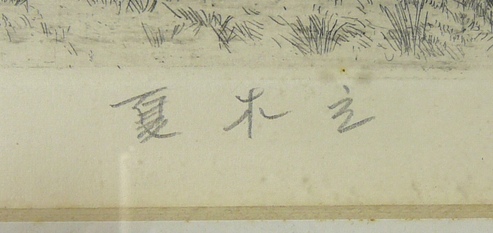 夏木立